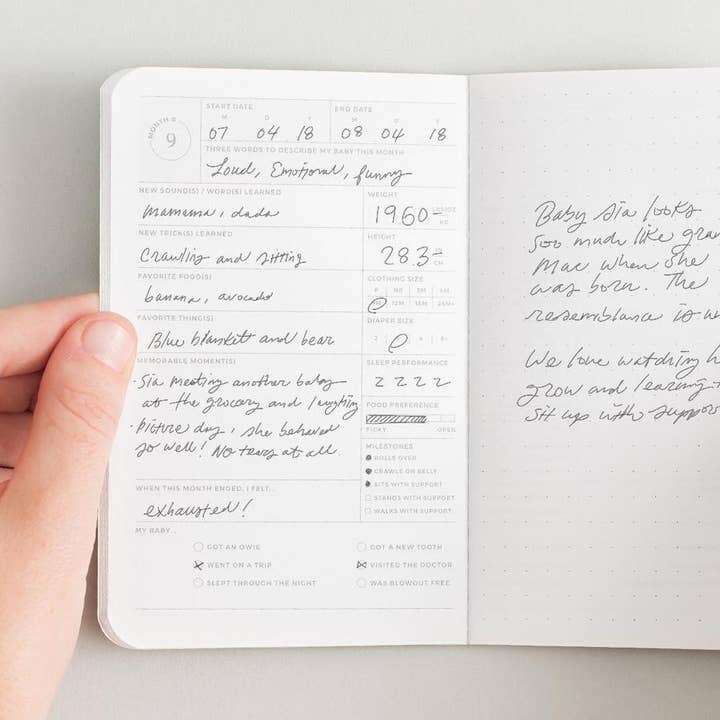 MONTH #
9
START DATE
END DATE
M D Y M D Y
07 04 18 08 04 18
THREE WORDS TO DESCRIBE MY BABY THIS MONTH
Loud, Emotional, funny
NEW SOUND(S) / WORD(S) LEARNED
mamama, dada
WEIGHT
1960- LBS/OZ
KG
NEW TRICK(S) LEARNED
Crawling and sitting
HEIGHT
28.3- IN
CM
FAVORITE FOOD(S)
banana, avocado
CLOTHING SIZE
P NB 3M 6M
9M 12M 18M 24M+
FAVORITE THING(S)
Blue blankett and bear
DIAPER SIZE
MEMORABLE MOMENT(S)
· Sia meeting another baby
at the grocery and laughing
· Picture day, she behaved
so well! No tears at all.
SLEEP PERFORMANCE
Z Z Z Z
FOOD PREFERENCE
PICKY OPEN
MILESTONES
ROLLS OVER
CRAWLS ON BELLY
SITS WITH SUPPORT
STANDS WITH SUPPORT
WALKS WITH SUPPORT
WHEN THIS MONTH ENDED, I FELT...
exhausted!
MY BABY...
GOT AN OWIE
WENT ON A TRIP
SLEPT THROUGH THE NIGHT
GOT A NEW TOOTH
VISITED THE DOCTOR
WAS BLOWOUT FREE
Baby Sia looks
soo much like gran
Mac, when she
was born. The
resemblance is
We love watching h
grow and learning
sit up with suppor